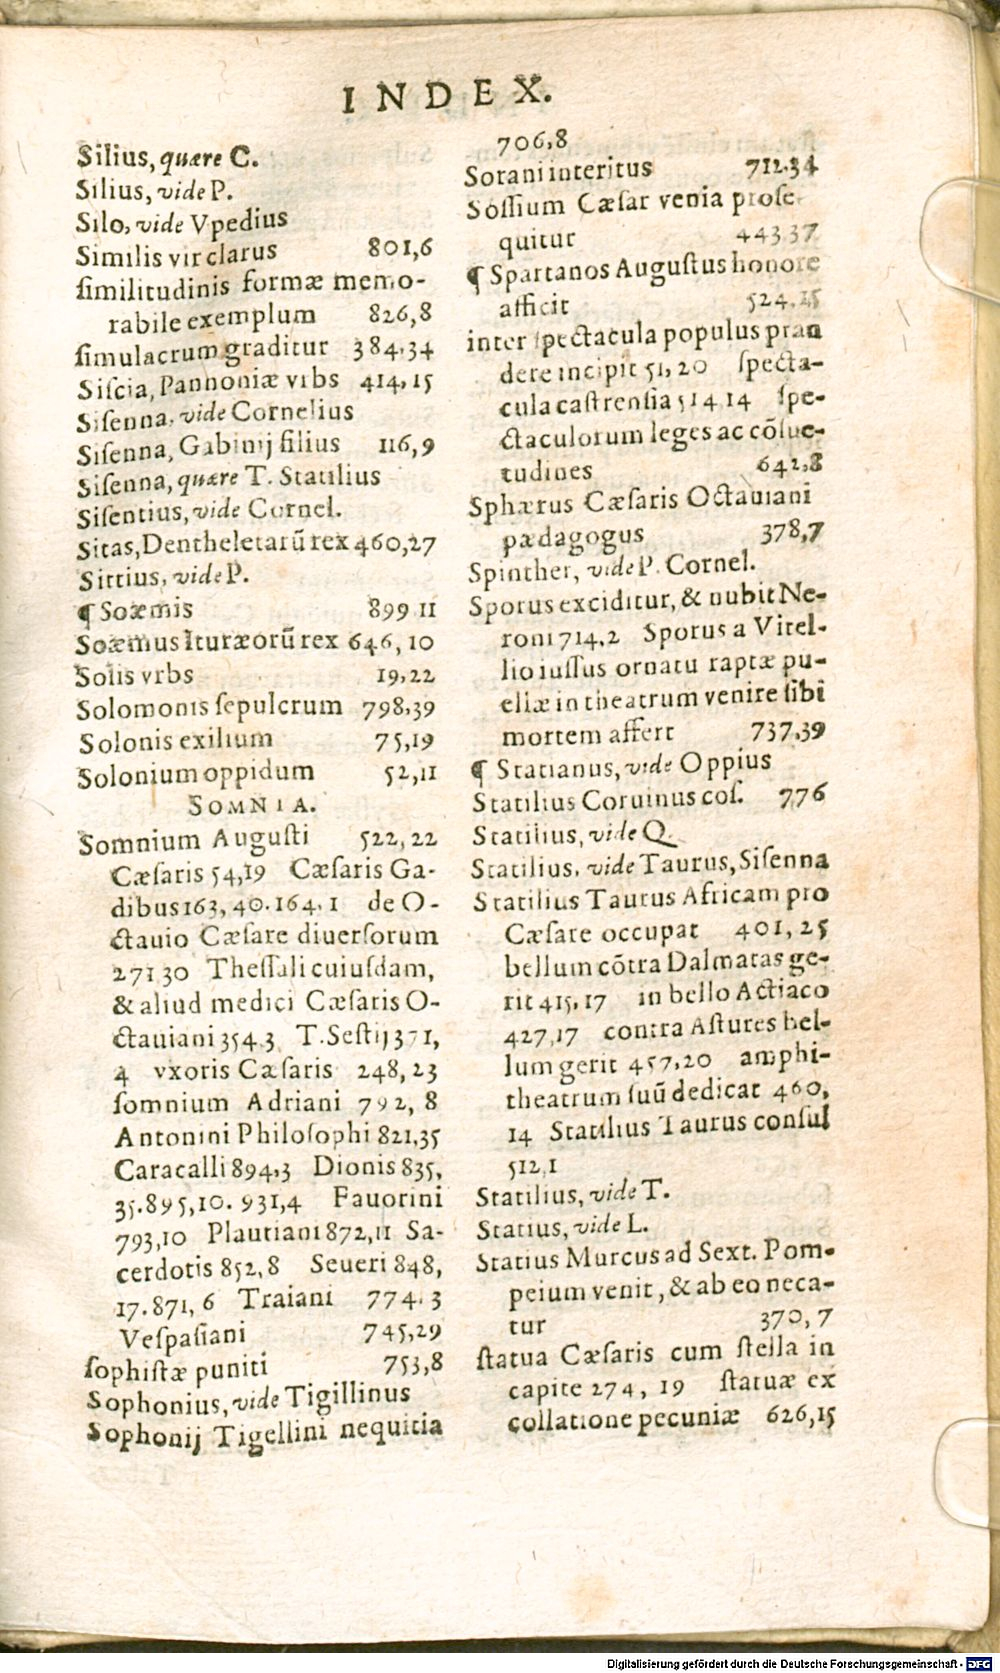 INDEX.
Silius, quære C.
Silius, vide P.
Silo, vide Vpedius
Similis vir clarus 801,6
ſimilitudinis formæ memo-
rabile exemplum 826,8
ſimulacrum graditur 384,34
Siſcia, Pannoniæ vrbs 414,15
Siſenna, vide Cornelius
Siſenna, Gabinij filius 116,9
Siſenna, quære T. Statilius
Siſentius, vide Cornel.
Sitas, Dentheletarũ rex 460,27
Sittius, vide P.
¶ Soæmis 899 11
Soæmus Ituræorũ rex 646, 10
Solis vrbs 19,22
Solomonis ſepulcrum 798,39
Solonis exilium 75,19
Solonium oppidum 52,11
SOMNIA.
Somnium Auguſti 522,22
Cæſaris 54,19 Cæſaris Ga-
dibus 163, 40. 164. 1 de O-
ctauio Cæſare diuerſorum
271 30 Theſſali cuiuſdam,
& aliud medici Cæſaris O-
ctauiani 354.3 T. Seſtij 371,
4 vxoris Cæſaris 248,23
ſomnium Adriani 792, 8
Antonini Philoſophi 821,35
Caracalli 894,3 Dionis 835,
35. 895,10. 931,4 Fauorini
793,10 Plautiani 872,11 Sa-
cerdotis 852,8 Seueri 848,
17. 871, 6 Traiani 774. 3
Veſpaſiani 745,29
ſophiſtæ puniti 753,8
Sophonius, vide Tigillinus
Sophonij Tigellini nequitia
706,8
Sorani interitus 712.34
Soſſium Cæſar venia proſe-
quitur 443 37
¶ Spartanos Auguſtus honore
afficit 524.25
inter ſpectacula populus pran
dere incipit 51, 20 ſpecta-
cula caſtrenſia 514 14 ſpe-
ctaculorum leges ac cõſue-
tudines 642,8
Sphærus Cæſaris Octauiani
pædagogus 378,7
Spinther, vide P. Cornel.
Sporus exciditur, & nubit Ne-
roni 714.2 Sporus a Vitel-
lio iuſſus ornatu raptæ pu-
ellæ in theatrum venire ſibi
mortem affert 737,39
¶ Statianus, vide Oppius
Statilius Coruinus coſ. 776
Statilius, vide Q.
Statilius, vide Taurus, Siſenna
Statilius Taurus Africam pro
Cæſare occupat 401, 25
bellum cõtra Dalmatas ge-
rit 415, 17 in bello Actiaco
427,17 contra Aſtures bel-
lum gerit 457,20 amphi-
theatrum ſuũ dedicat 460,
14 Statilius Taurus conſul
512,1
Statilius, vide T.
Statius, vide L.
Statius Murcus ad Sext. Pom-
peium venit, & ab eo neca-
tur 370, 7
ſtatua Cæſaris cum ſtella in
capite 274, 19 ſtatuæ ex
collatione pecuniæ 626,15
Digitalisierung gefördert durch die Deutsche Forschungsgemeinschaft - DFG